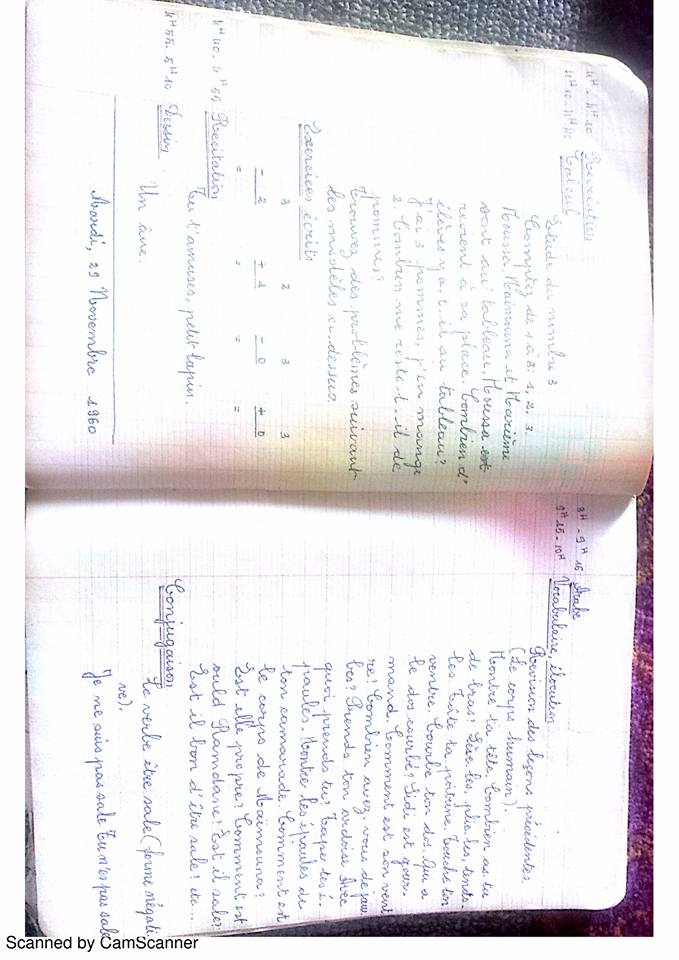 4H - 4H10 Récréation
4H10 - 4H40 Calcul
Etude du nombre 3
Comptez de 1 à 3: 1, 2, 3.
Moussa, Maïmouna et Marième
sont au tableau, Moussa est
revient à sa place. Combien d'
élèves y a t-il au tableau?
J'ai 3 pommes, j'en mange
2. Combien me reste t-il de
pommes?
Trouvez des problèmes suivant
les modèles ci-dessus.
Exercices écrits
3 2 3 3
- 2 + 1 - 0 + 0
= = = =
4H40 - 4H55 Récitation
Tu t'amuses, petit lapin.
4H55 - 5H10 Dessin
Un âne.
Mardi, 29 Novembre 1960
8H - 9H15 Arabe
9H15 - 10H Vocabulaire, élocution
Révision des leçons précédentes.
(Le corps humain).
Montre ta tête, Combien as tu
de bras? Lève les, plie les, tends
les. Frotte ta poitrine. Touche ton
ventre. Courbe ton dos. Qui a
le dos courbé? Sidi est gour-
mand. Comment est son vent
re? Combien avez vous de jam
bes? Prends ton ardoise. Avec
quoi prends tu? Tape les é-
paules. Montre les épaules de
ton camarade. Comment est
le corps de Maïmouna?
Est elle propre? Comment est
ould Ramdane? Est il sale?
Est il bon d'être sale? etc...
Conjugaison
Le verbe être sale (forme négati-
ve).
Je ne suis pas sale Tu n'es pas sale
Scanned by CamScanner